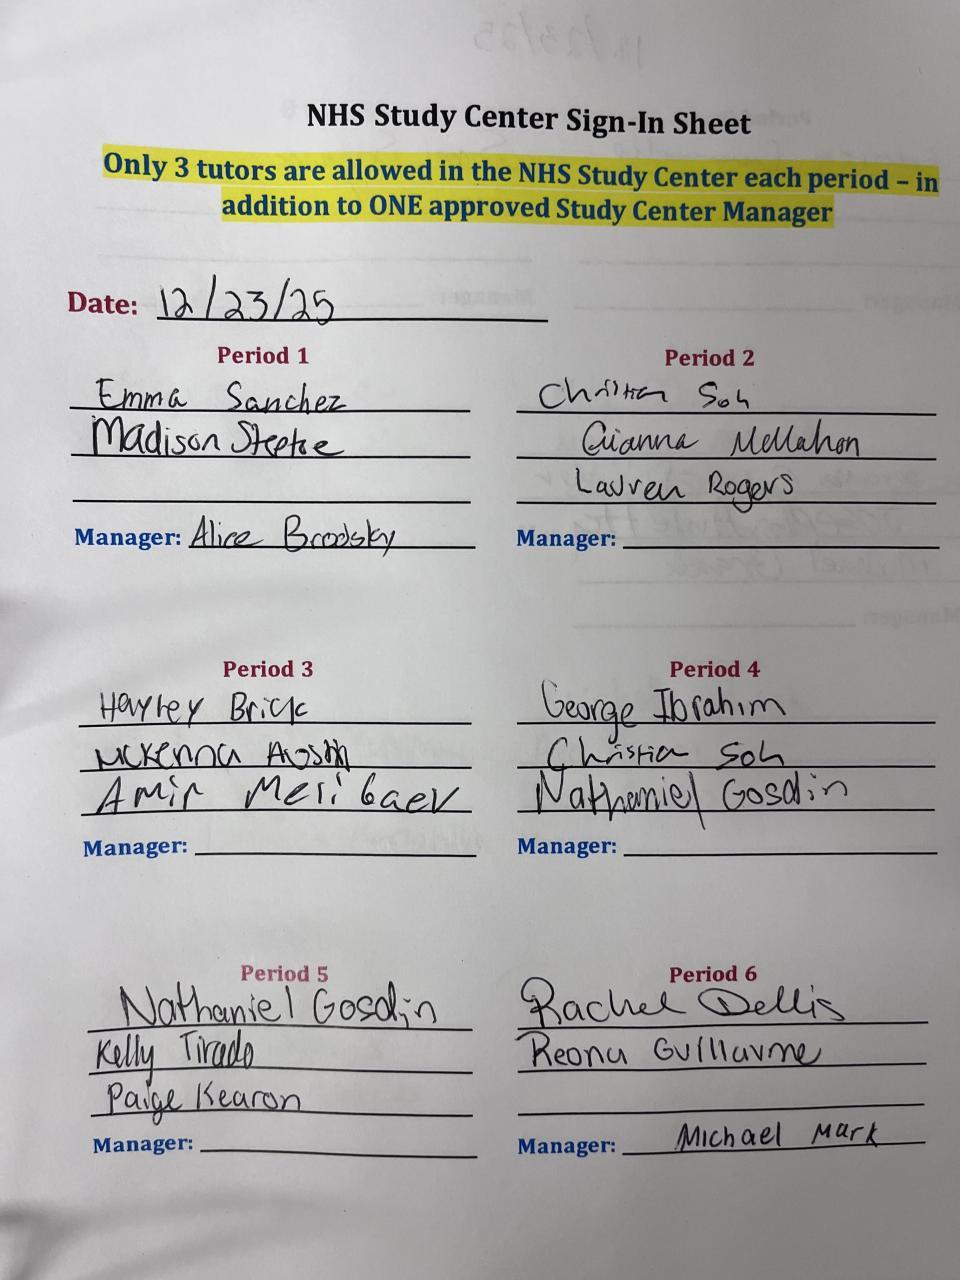 NHS Study Center Sign-In Sheet
Only 3 tutors are allowed in the NHS Study Center each period – in
addition to ONE approved Study Center Manager
Date: 12/23/25
Period 1
Emma Sanchez
Madison Steptoe
Manager: Alice Brodsky
Period 2
Christian Soh
Gianna McMahon
Lauren Rogers
Manager:
Period 3
Hayley Brick
McKenna Austin
Amir Meribaev
Manager:
Period 4
George Ibrahim
Christian Soh
Nathaniel Gosdin
Manager:
Period 5
Nathaniel Gosdin
Kelly Tirado
Paige Kearon
Manager:
Period 6
Rachel Dellis
Reona Guillaume
Manager: Michael Mark